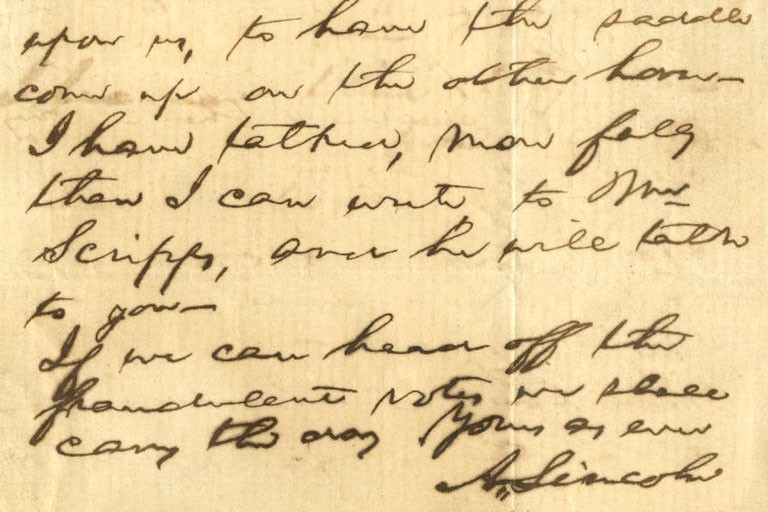 upon us, to have the saddle
come up on the other horse—
I have talked, more fully
than I can write, to Mr
Scripps, and he will talk
to you—
If we can head off the
fraudulent votes we shall
carry the day Yours as ever
A. Lincoln